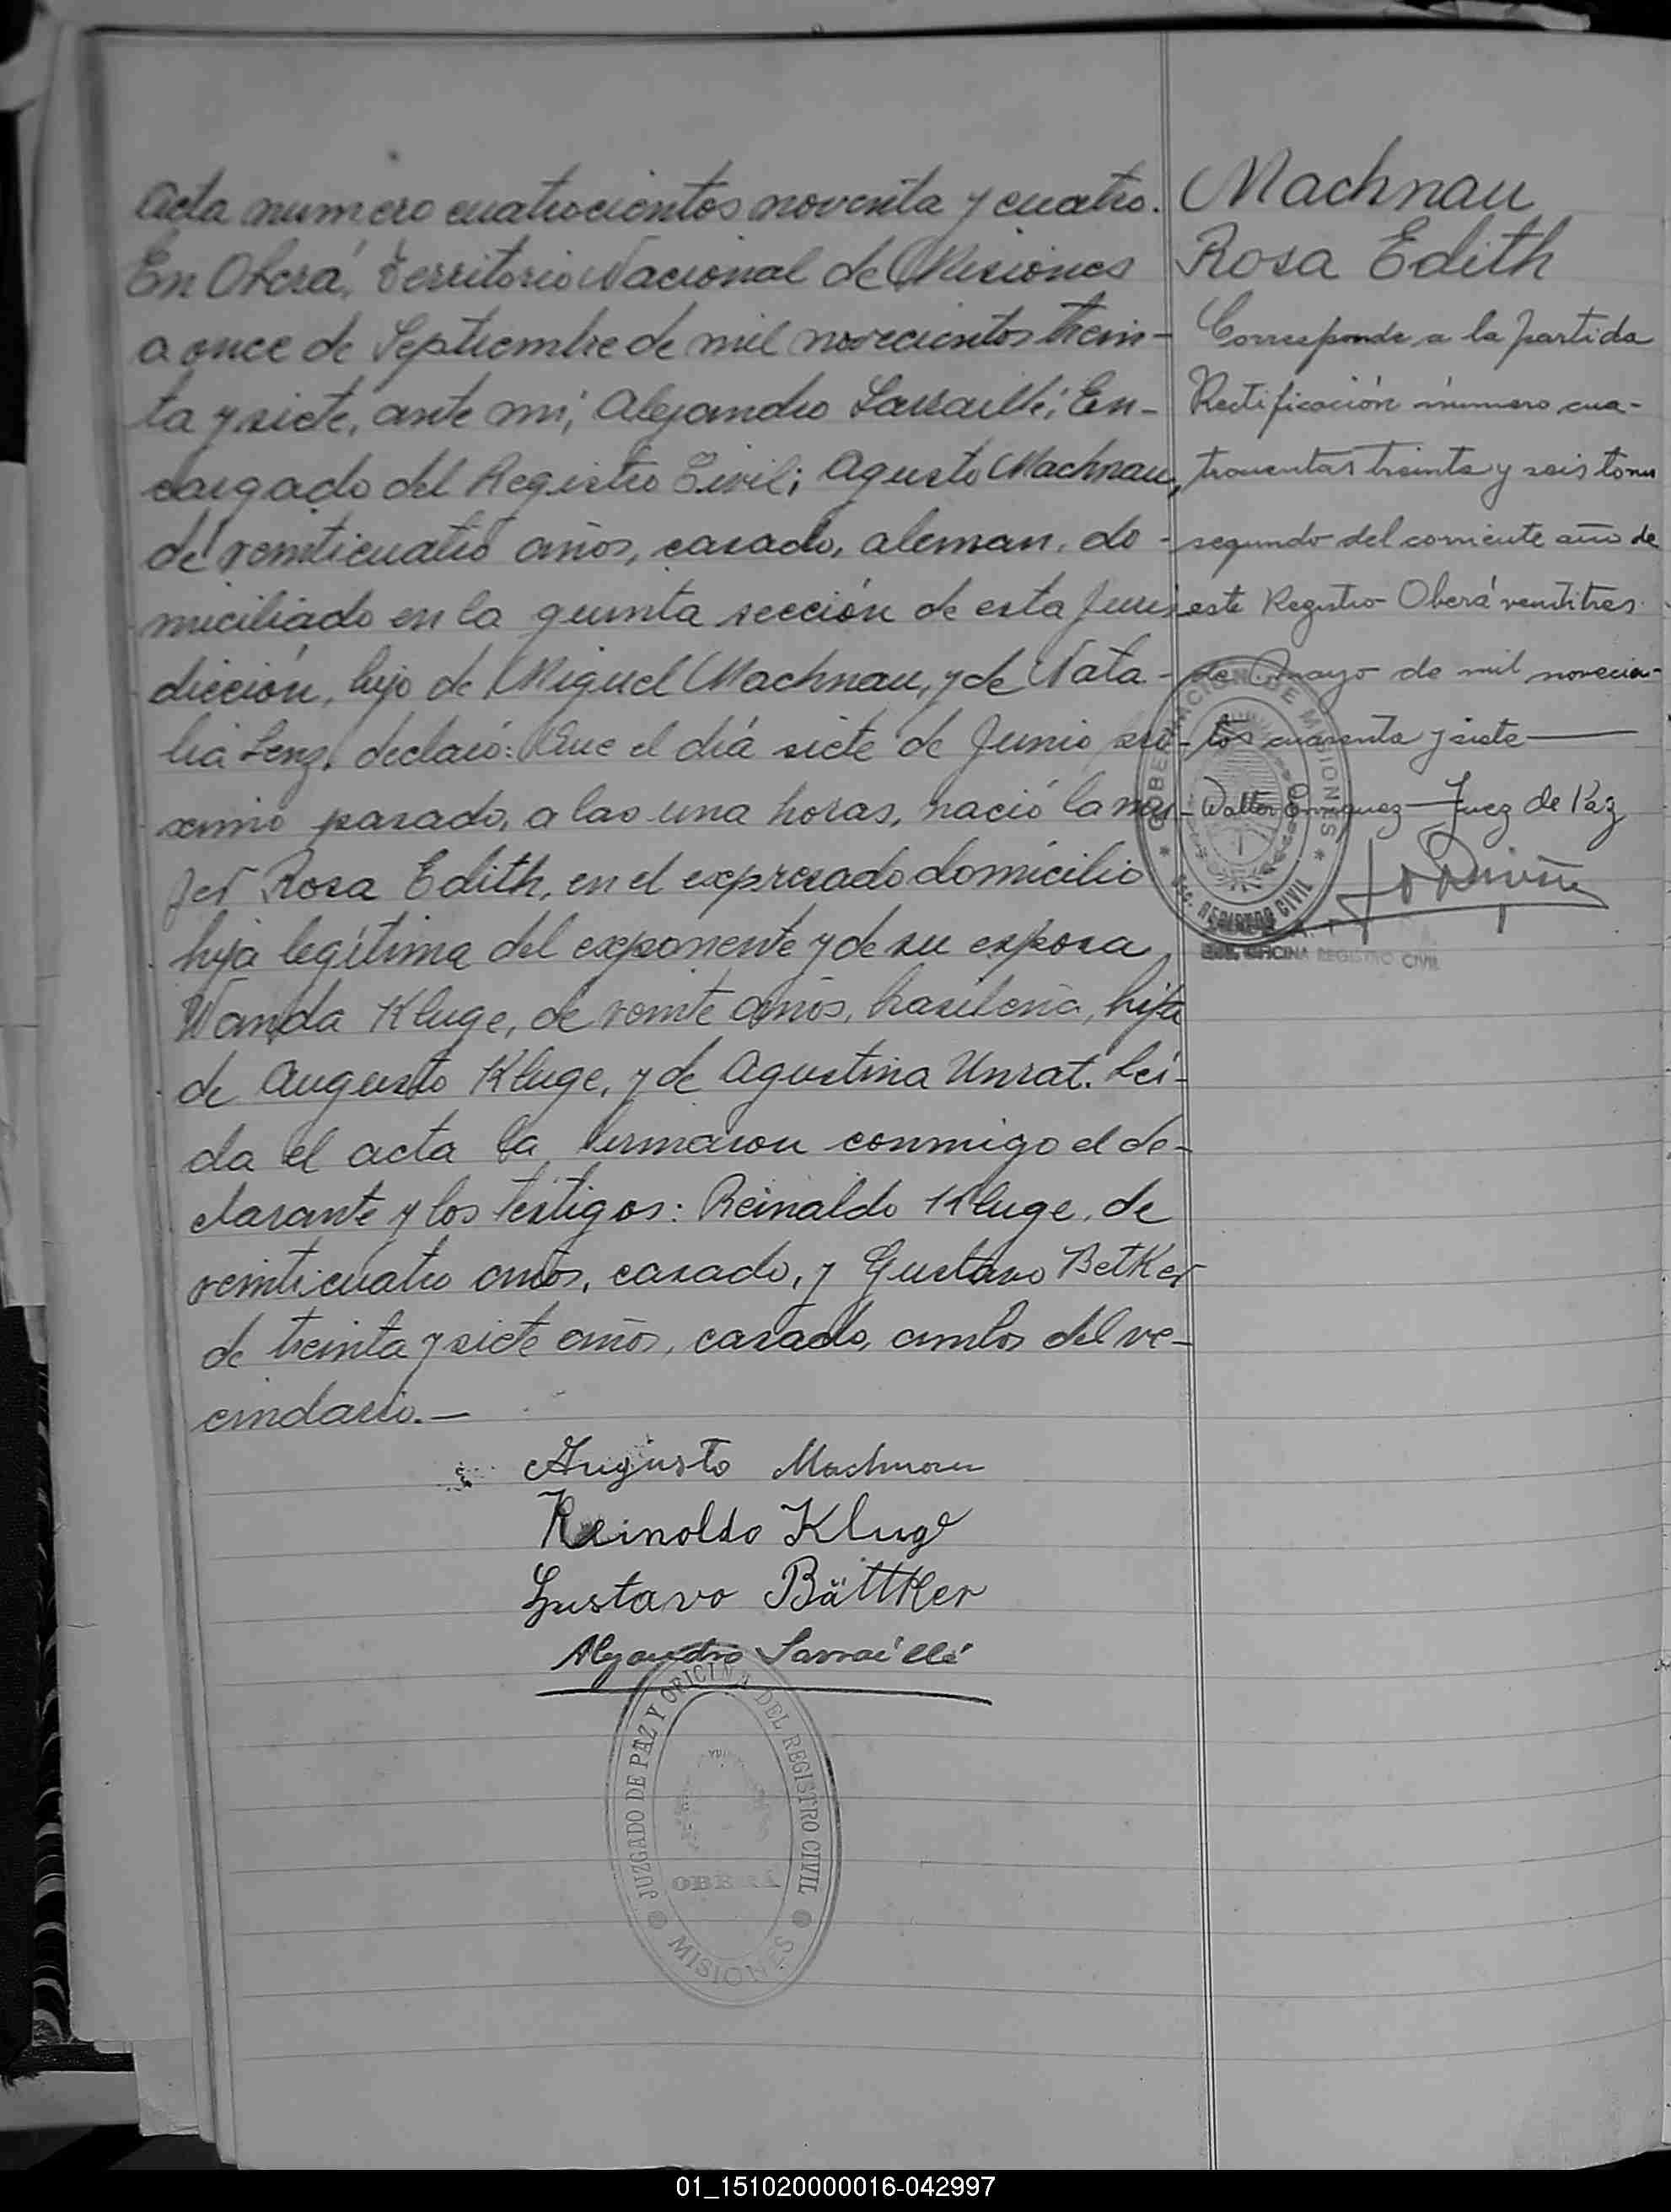 Acta numero cuatrocientos noventa y cuatro.
En Oberá, Territorio Nacional de Misiones
a once de Septiembre de mil novecientos trein-
ta y siete, ante mi, Alejandro Sarraillé, En-
cargado del Registro Civil; Agusto Machnau,
de veinticuatro años, casado, aleman, do-
miciliado en la quinta sección de esta Juris
dicción, hijo de Miguel Machnau, y de Nata-
lia Lenz, declaró: Que el día siete de Junio pró-
ximo pasado, a las una horas, nació la mu-
jer Rosa Edith, en el expresado domicilio
hija legítima del exponente y de su esposa
Wanda Kluge, de veinte años, brasileña, hija
de Augusto Kluge, y de Agustina Unrat. Leí-
da el acta la firmaron conmigo el de-
clarante y los testigos: Reinaldo Kluge, de
veinticuatro años, casado, y Gustavo Betker
de treinta y siete años, casado, ambos del ve-
cindario.—
Augusto Machnau
Reinoldo Kluge
Gustavo Bättker
Alejandro Sarraillé
JUZGADO DE PAZ Y OFICINA DEL REGISTRO CIVIL
OBERA
MISIONES
Machnau
Rosa Edith
Corresponde a la partida
Rectificación número cua-
trocientas treinta y seis tomo
segundo del corriente año de
este Registro Oberá veintitres
de mayo de mil novecien-
tos cuarenta y siete
Walter Juez de Paz
GOBERNACION DE MISIONES
SEC. REGISTRO CIVIL
OFICINA REGISTRO CIVIL
01_151020000016-042997